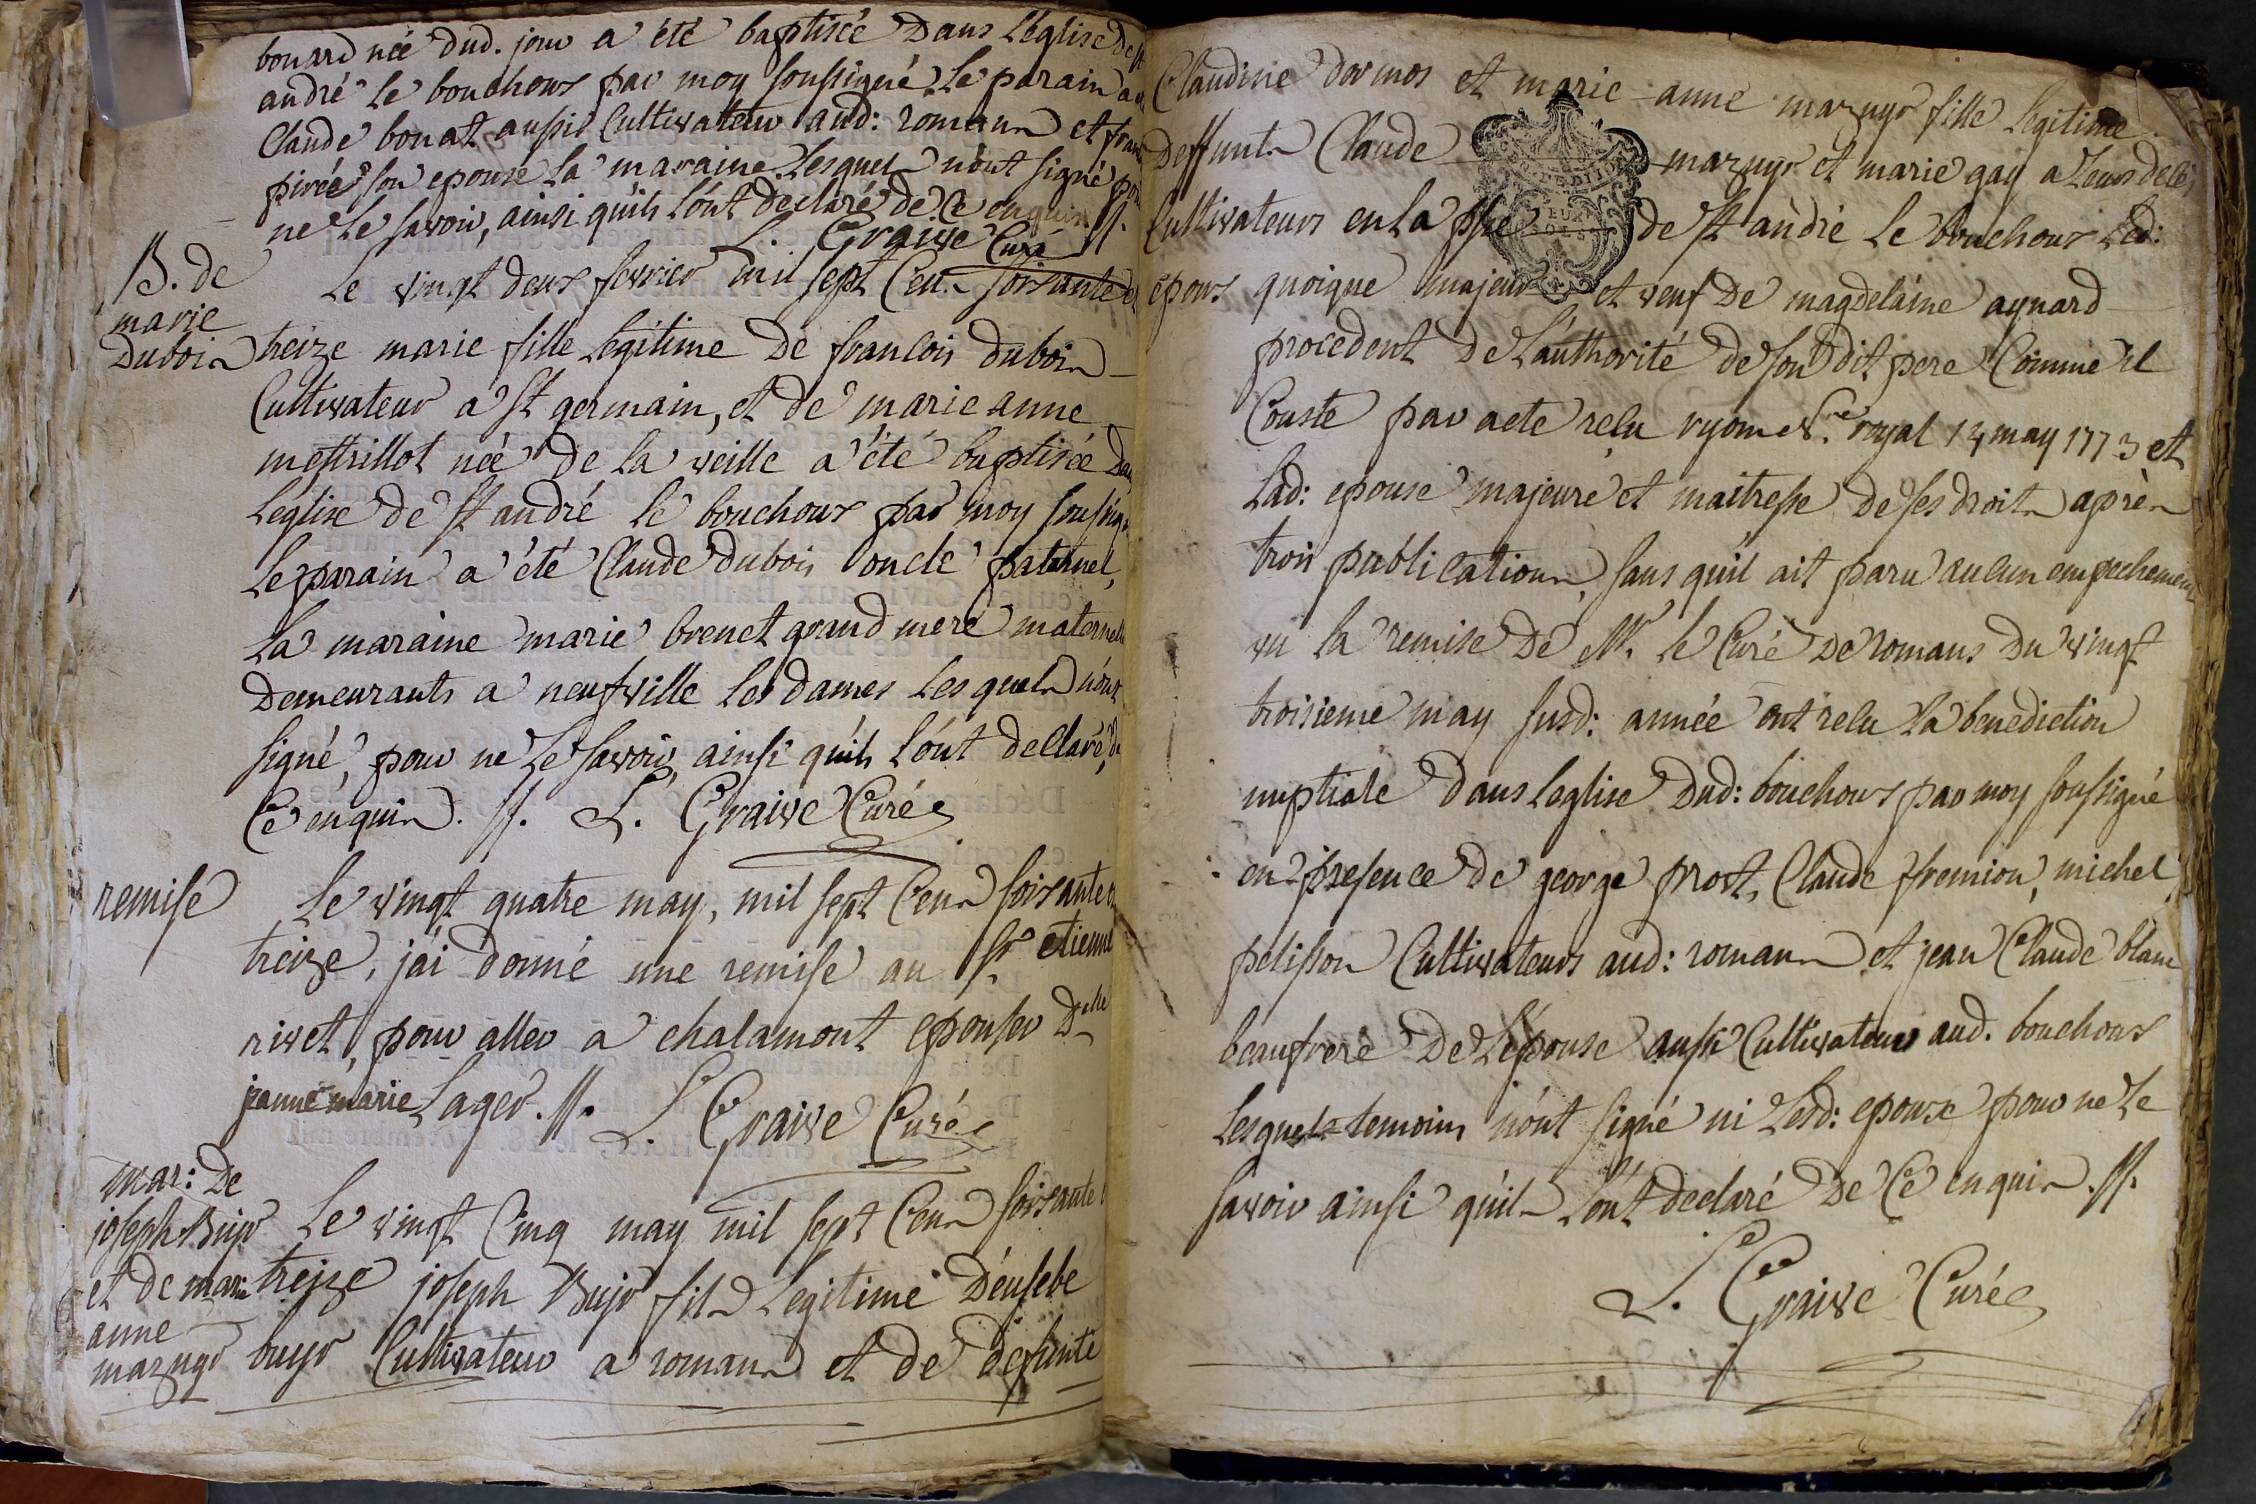 bonard née dud. jour a été baptisée dans L'église de st
andré le bouchoux par moy soussigné, Le parain a
Claude bonat aussi Cultivateur aud: romans et
pirée son epouse La maraine Lesquels n'ont signé pour
ne Le savoir, ainsi qu'ils L'ont declaré de Ce enquis //.
L. Graive Curé
B. de
marie
Dubois
Le vingt deux fevrier mil sept Cens soixante et
treize marie fille Légitime De francois dubois
Cultivateur a St germain, et de marie anne
mestrillot née de La veille a été baptisée Dans
L'église de St andré le bouchoux par moy soussigné
Le parain a été Claude Dubois oncle paternel,
La maraine marie brenet grand mere maternelle
Demeurants a neufville Les dames Lesquels n'ont
signé, pour ne Le savoir, ainsi qu'ils L'ont declaré, de
Ce enquis. //. L. Graive Curé
remise
Le vingt quatre may, mil sept Cens soixante et
treize, j'ai donné une remise au Sr. etienne
rivet, pour aller a chalamont epouser Dlle
janne marie Lager. //. L. Graive Curé
mar: De
joseph Buyr
et de marie
anne
mazuyr
Le vingt Cinq may mil sept Cens soixante et
treize joseph Buyr fils Légitime D'eusebe
buyr Cultivateur a romans et de defunte
Claudine dormos et marie anne mazuyr fille Legitime
Deffunts Claude mazuyr et marie gay a Leurs deces
Cultivateurs en La psse de St andré Le bouchoux Led:
epoux quoique majeur et veuf De magdelaine aynard
procedent De L'authorité de son dit pere Comme il
Conste par acte reçu ryom Nre. royal 14 may 1773 et
Lad: epouse majeure et maitresse de ses droits après
trois publications, sans qu'il ait paru aucun empechement
vu La remise De Mr. Le Curé De romans Du vingt
troisieme may susd: année ont reçu La benediction
nuptiale dans L'eglise Dud: bouchoux par moy soussigné
en presence de george prost, Claude fremion, michel
pelisson Cultivateurs aud: romans et jean Claude blanc
beaufrere De L'epouse aussi Cultivateur aud. bouchoux
Lesquels temoins n'ont signé ni Lesd: epoux pour ne Le
savoir ainsi qu'ils L'ont declaré De Ce enquis. //.
L. Graive Curé